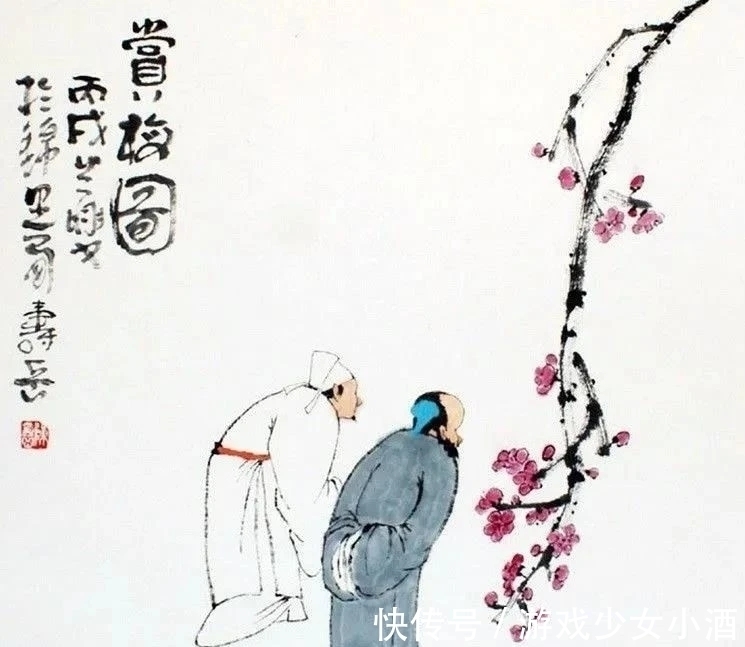 賞梅圖
丙戌之
於錦里蜀壽岳
快传号 / 游戏少女小酒